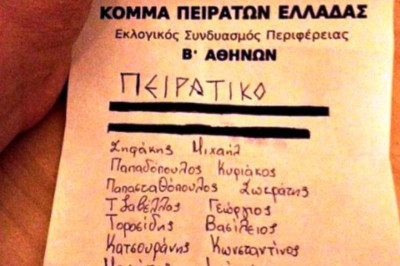 ΚΟΜΜΑ ΠΕΙΡΑΤΩΝ ΕΛΛΑΔΑΣ
Εκλογικός Συνδυασμός Περιφέρειας
Β' ΑΘΗΝΩΝ
ΠΕΙΡΑΤΙΚΟ
Σηφάκης Μιχαήλ
Παπαδόπουλος Κυριάκος
Παπασταθόπουλος Σωκράτης
Τζαβέλλας Γεώργιος
Τοροσίδης Βασίλειος
Κατσουράνης Κωνσταντίνος